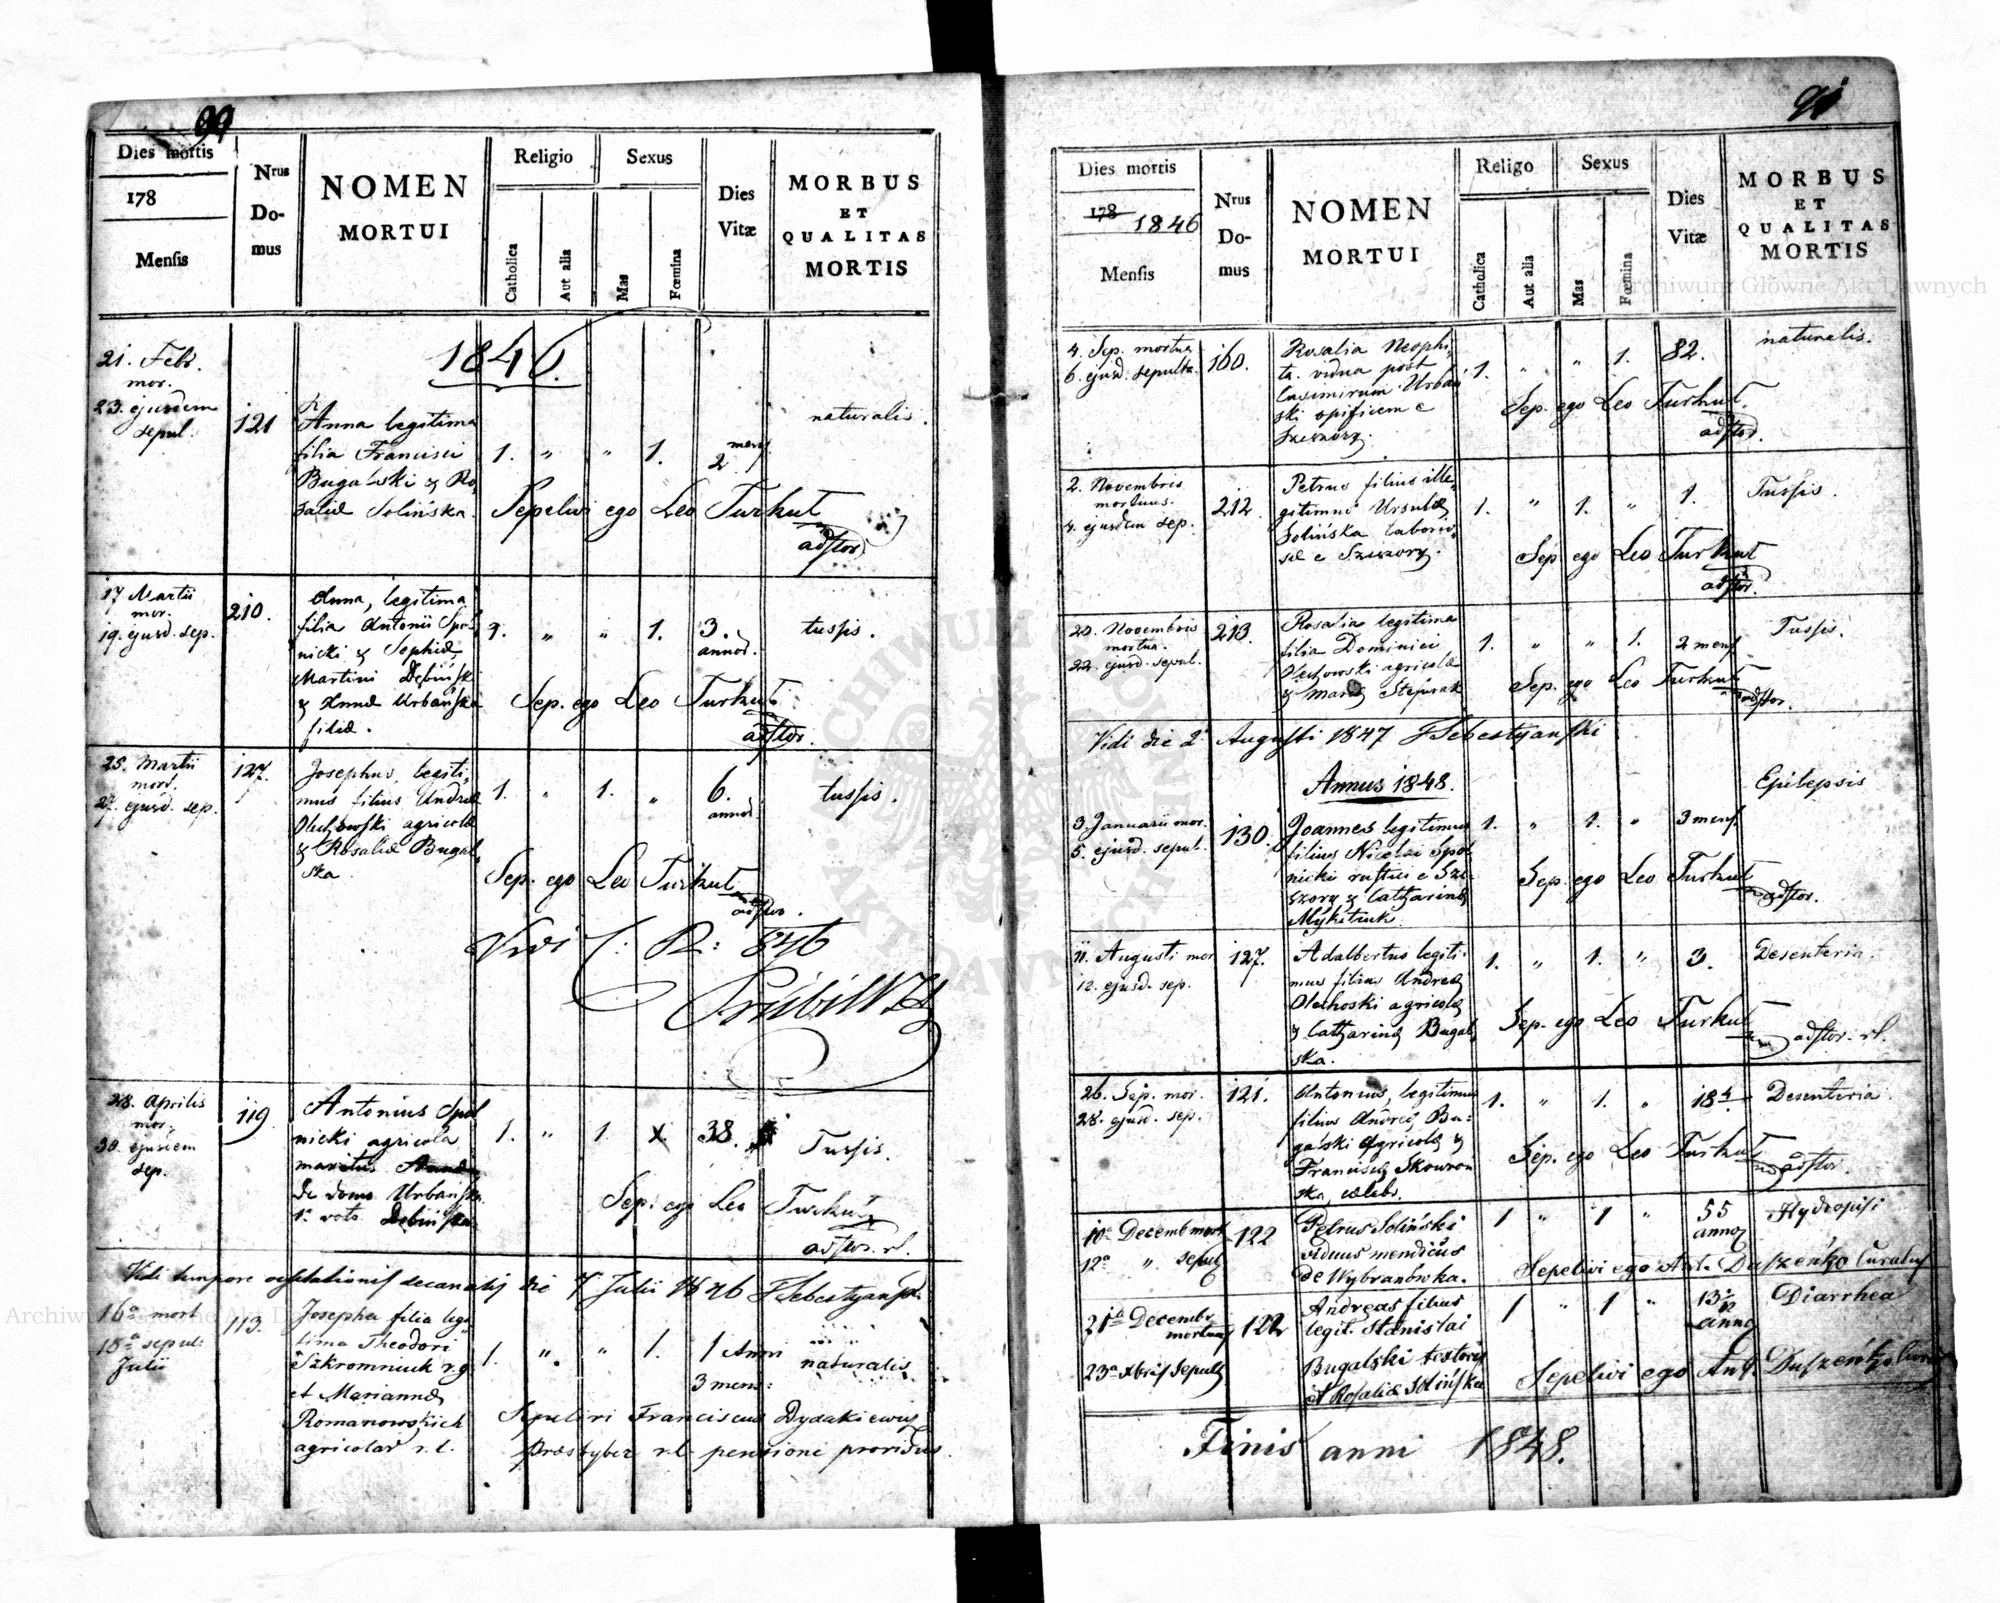 99
Dies mortis
178
Mensis
Nrus
Do-
mus
NOMEN
MORTUI
Religio
Catholica
Aut alia
Sexus
Mas
Fœmina
Dies
Vitæ
MORBUS
ET
QUALITAS
MORTIS
1846.
21. Febr.
mor.
23. ejusdem
sepul.
121
Anna legitima
filia Francisci
Bugalski & Ro,
saliæ Solińska.
1. „ „ 1.
mens
2
naturalis.
Sepelivi ego Leo Turkut
adstor.
17 Martii
mor.
19. ejusd. sep.
210.
Anna, legitima
filia Antonii Spol
nicki & Sophiæ
Martini Dębiński
& Annæ Urbańska
filiæ.
1. „ „ 1.
3.
annor.
tussis.
Sep. ego Leo Turkut
adstor.
25. Martii
mort.
27. ejusd. sep.
127.
Josephus, legiti,
mus filius Andreæ
Olechowski agricolæ
& Rosaliæ Bugal,
ska.
1. „ 1. „
6.
annor.
tussis.
Sep. ego Leo Turkut
adstor.
Vidi C: R: 846
28. Aprilis
mor.
30. ejusdem
sep.
119
Antonius Spol
nicki agricola
maritus Annæ
de domo Urbańska
1° voto Dębińska
1. „ 1. x 38.
Tussis.
Sep. ego Leo Turkut
adstor. r.l.
Vidi tempore decanalis die 7 Julii 1846 FSebestyański
16ª mort
18ª sepul:
Julii
113.
Josepha filia legi
tima Theodori
Szkromniuk r.g.
et Mariannæ
Romanowskich
agricolar r. l.
1. „ „ 1.
1 Anni
3 mens:
naturalis
Sepelivi Franciscus Dydakiewicz
Præsbyter r.l. pensione providus.
91
Dies mortis
178 1846
Mensis
Nrus
Do-
mus
NOMEN
MORTUI
Religo
Catholica
Aut alia
Sexus
Mas
Fœmina
Dies
Vitæ
MORBUS
ET
QUALITAS
MORTIS
4. Sep. mortua
6. ejusd. sepulta
160.
Rosalia Neophi,
ta, vidua post
Casimirum Urbań
ski opificem e
Szeszory.
1. „ „ 1. 82.
naturalis.
Sep. ego Leo Turkut.
adstor.
2. Novembris
mortuus.
4. ejusdem sep.
212
Petrus filius ille,
gitimus Ursulæ
Solińska laborio,
sæ e Szeszory.
1. „ 1. „ 1.
Tussis.
Sep. ego Leo Turkut
adstor.
20. Novembris
mortua.
22. ejusd. sepul.
213.
Rosalia legitima
filia Dominici
Olechowski agricolæ
& Mariæ Stefurak
1. „ „ 1. 2 mens
Tussis.
Sep. ego Leo Turkut
adstor.
Vidi die 2 Augusti 1847 FSebestyański
Annus 1848.
3. Januarii mor.
5. ejusd. sepul.
130.
Joannes legitimus
filius Nicolai Spol
nicki rustici e Sze
szory & Catharinæ
Mykitiuk.
1. „ 1. „ 3 mens.
Epilepsis
Sep. ego Leo Turkut
adstor.
11. Augusti mor
12. ejusd. sep.
127.
Adalbertus legiti-
mus filius Andreæ
Olechoski agricolæ
& Catharinæ Bugal,
ska.
1. „ 1. „ 3.
Desenteria.
Sep. ego Leo Turkut
adstor. r.l.
26. Sep. mor.
28. ejusd. sep.
121.
Antonius, legitimus
filius Andreæ Bu:
galski Agricolæ &
Franciscæ Skowron
ska, cælebs.
1. „ 1. „ 18
Desenteria
Sep. ego Leo Turkut
adstor.
10ª Decemb mort
12ª „ sepul
122
Petrus Soliński
viduus mendicus
de Wybranówka.
1 „ 1 „ 55
anno
Hydropisi
Sepelivi ego Ant. Duszeńko Curatus
21ª Decembr
mortuus
23ª Xbris Sepult
122
Andreas filius
legit. Stanislai
Bugalski textoris
& Rosaliæ Solińska
1 „ 1 „ 13
anno
Diarrhea
Sepelivi ego Ant. Duszeńko Curat
Finis anni 1848.
Archiwum Główne Akt Dawnych